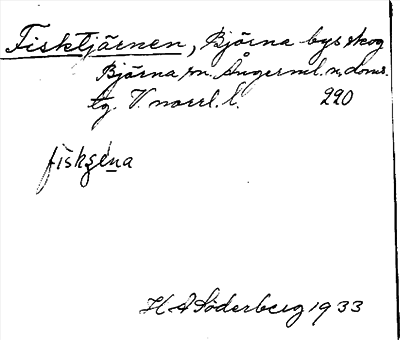 Fisktjärnen, Björna bys skog
Björna sn. Ångerml. n. doms.
tg. V. norrl. l. 290
fiskʂɛ̀na
H A Söderberg 1933